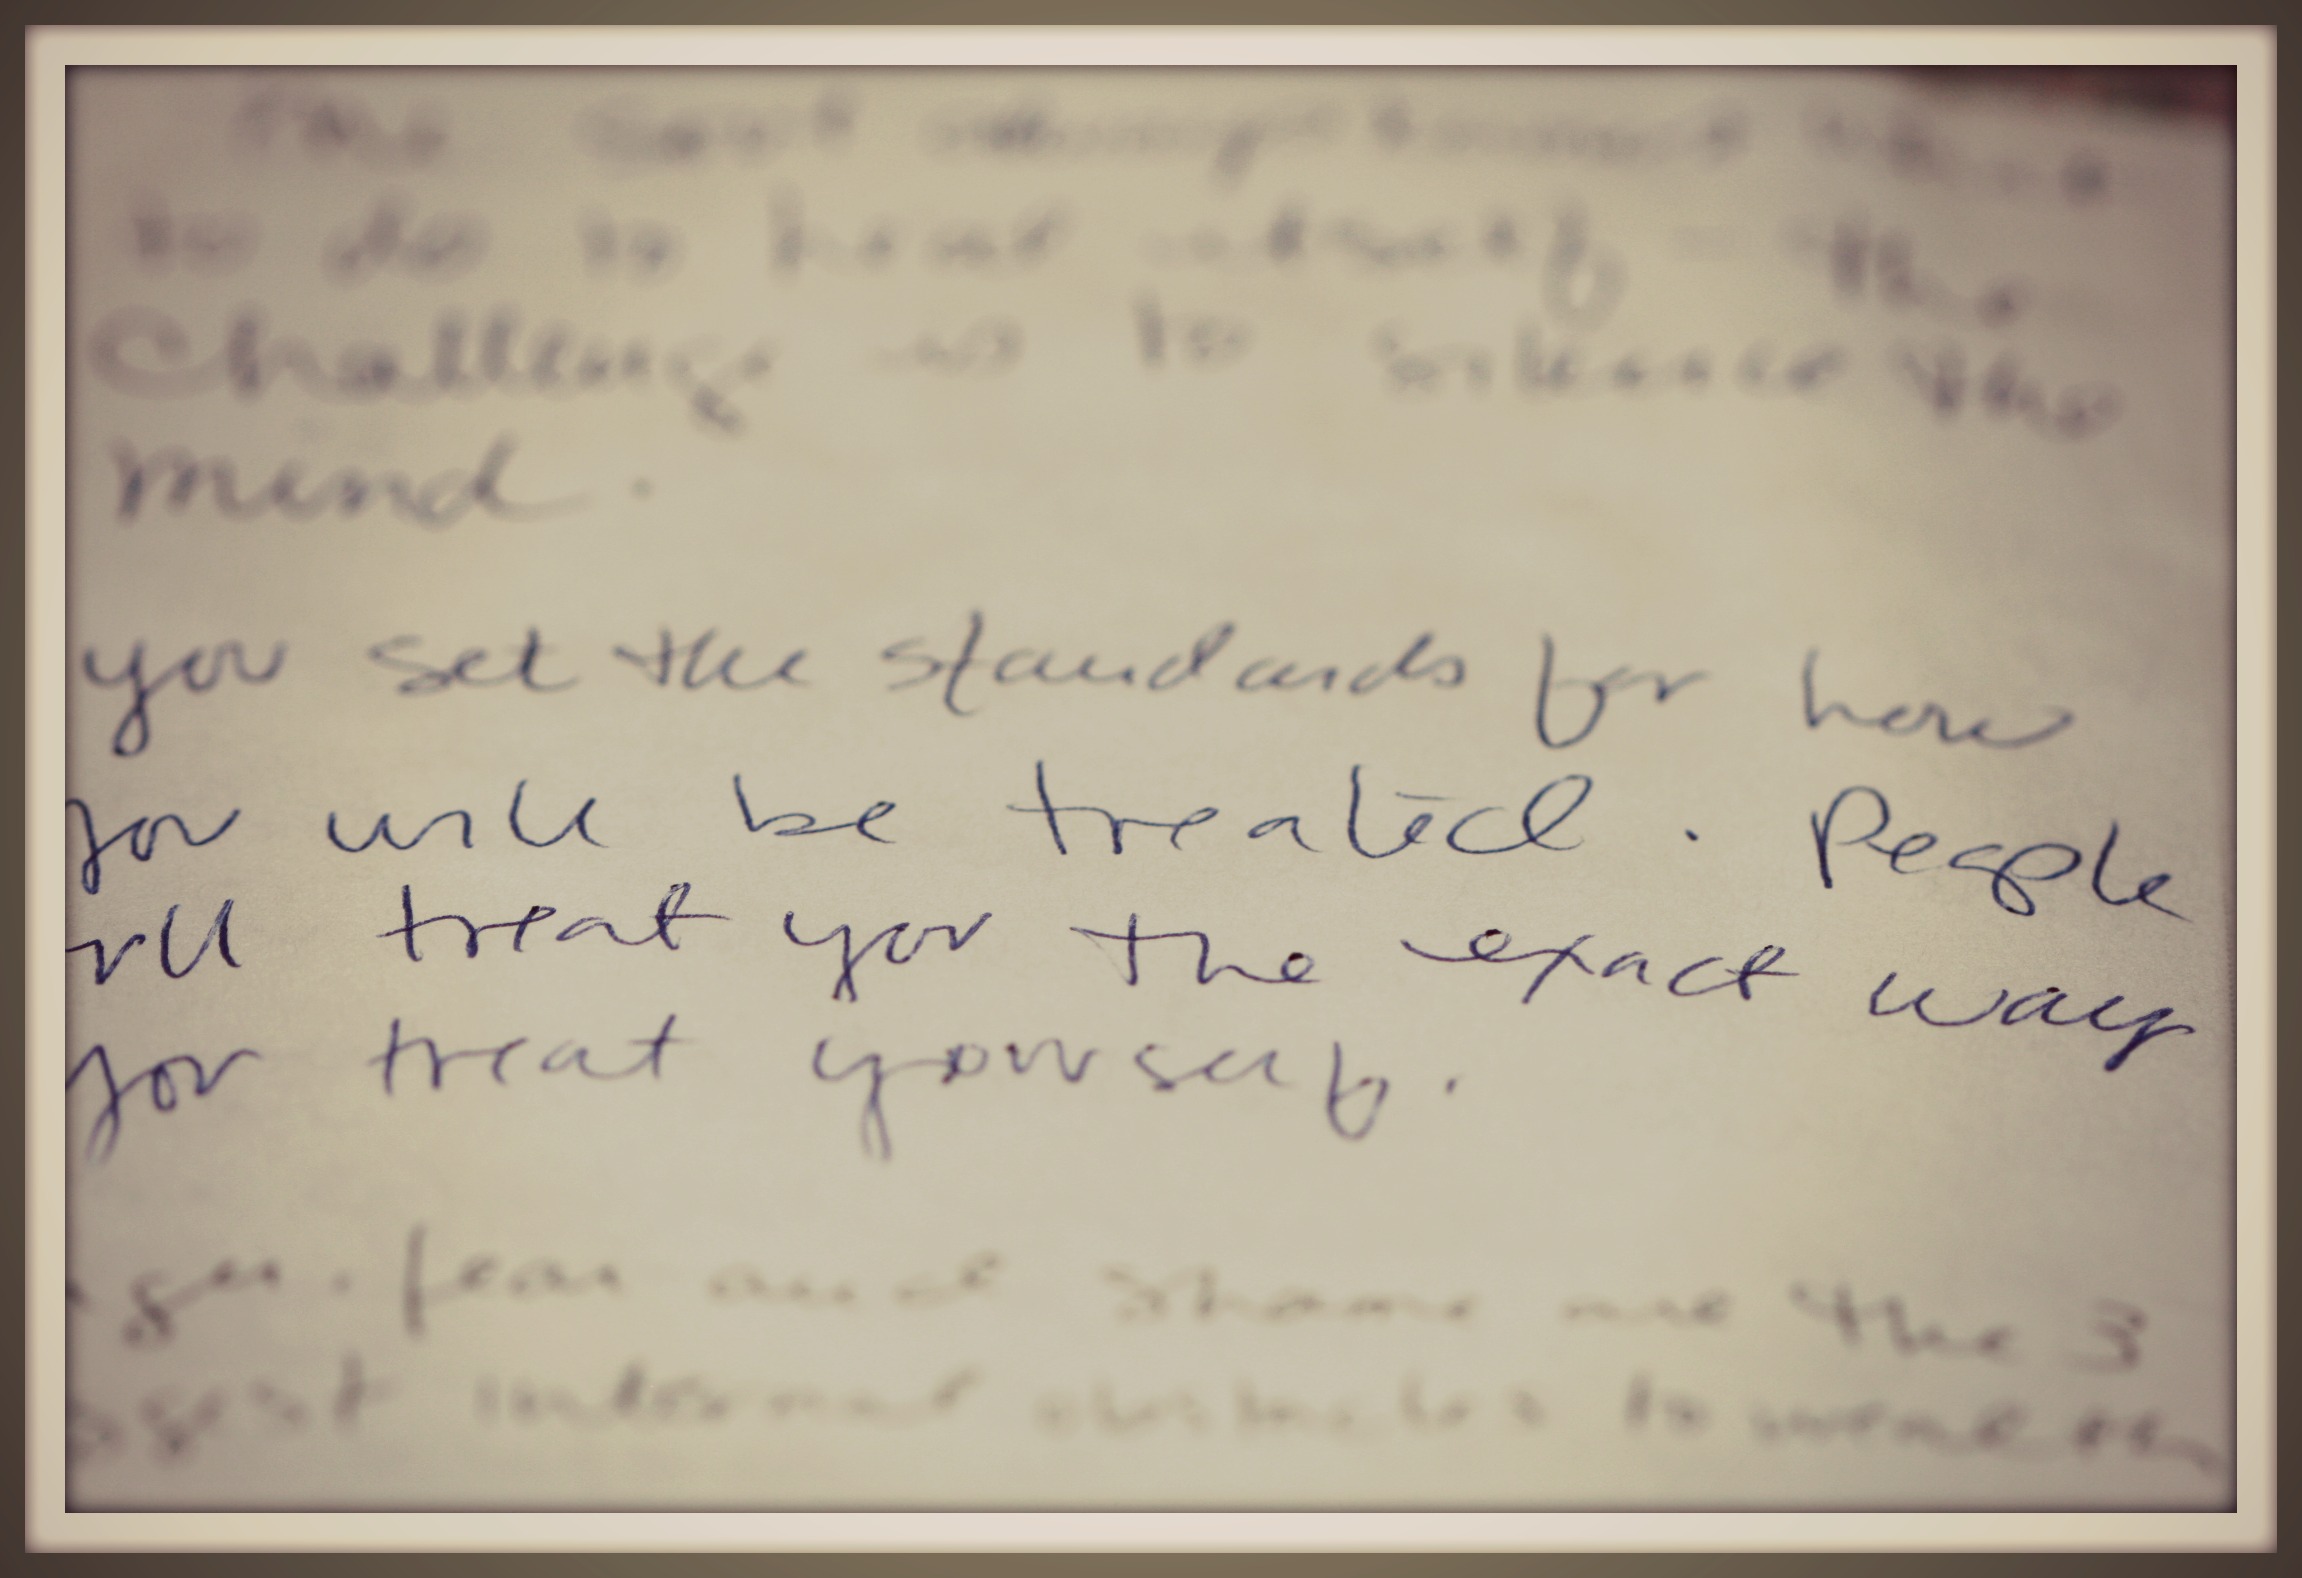 The soul always knows what
to do to heal itself - the
Challenge is to silence the
mind.
you set the standards for how
you will be treated. People
will treat you the exact way
you treat yourself.
fear and shame are the 3
internal obstacles to